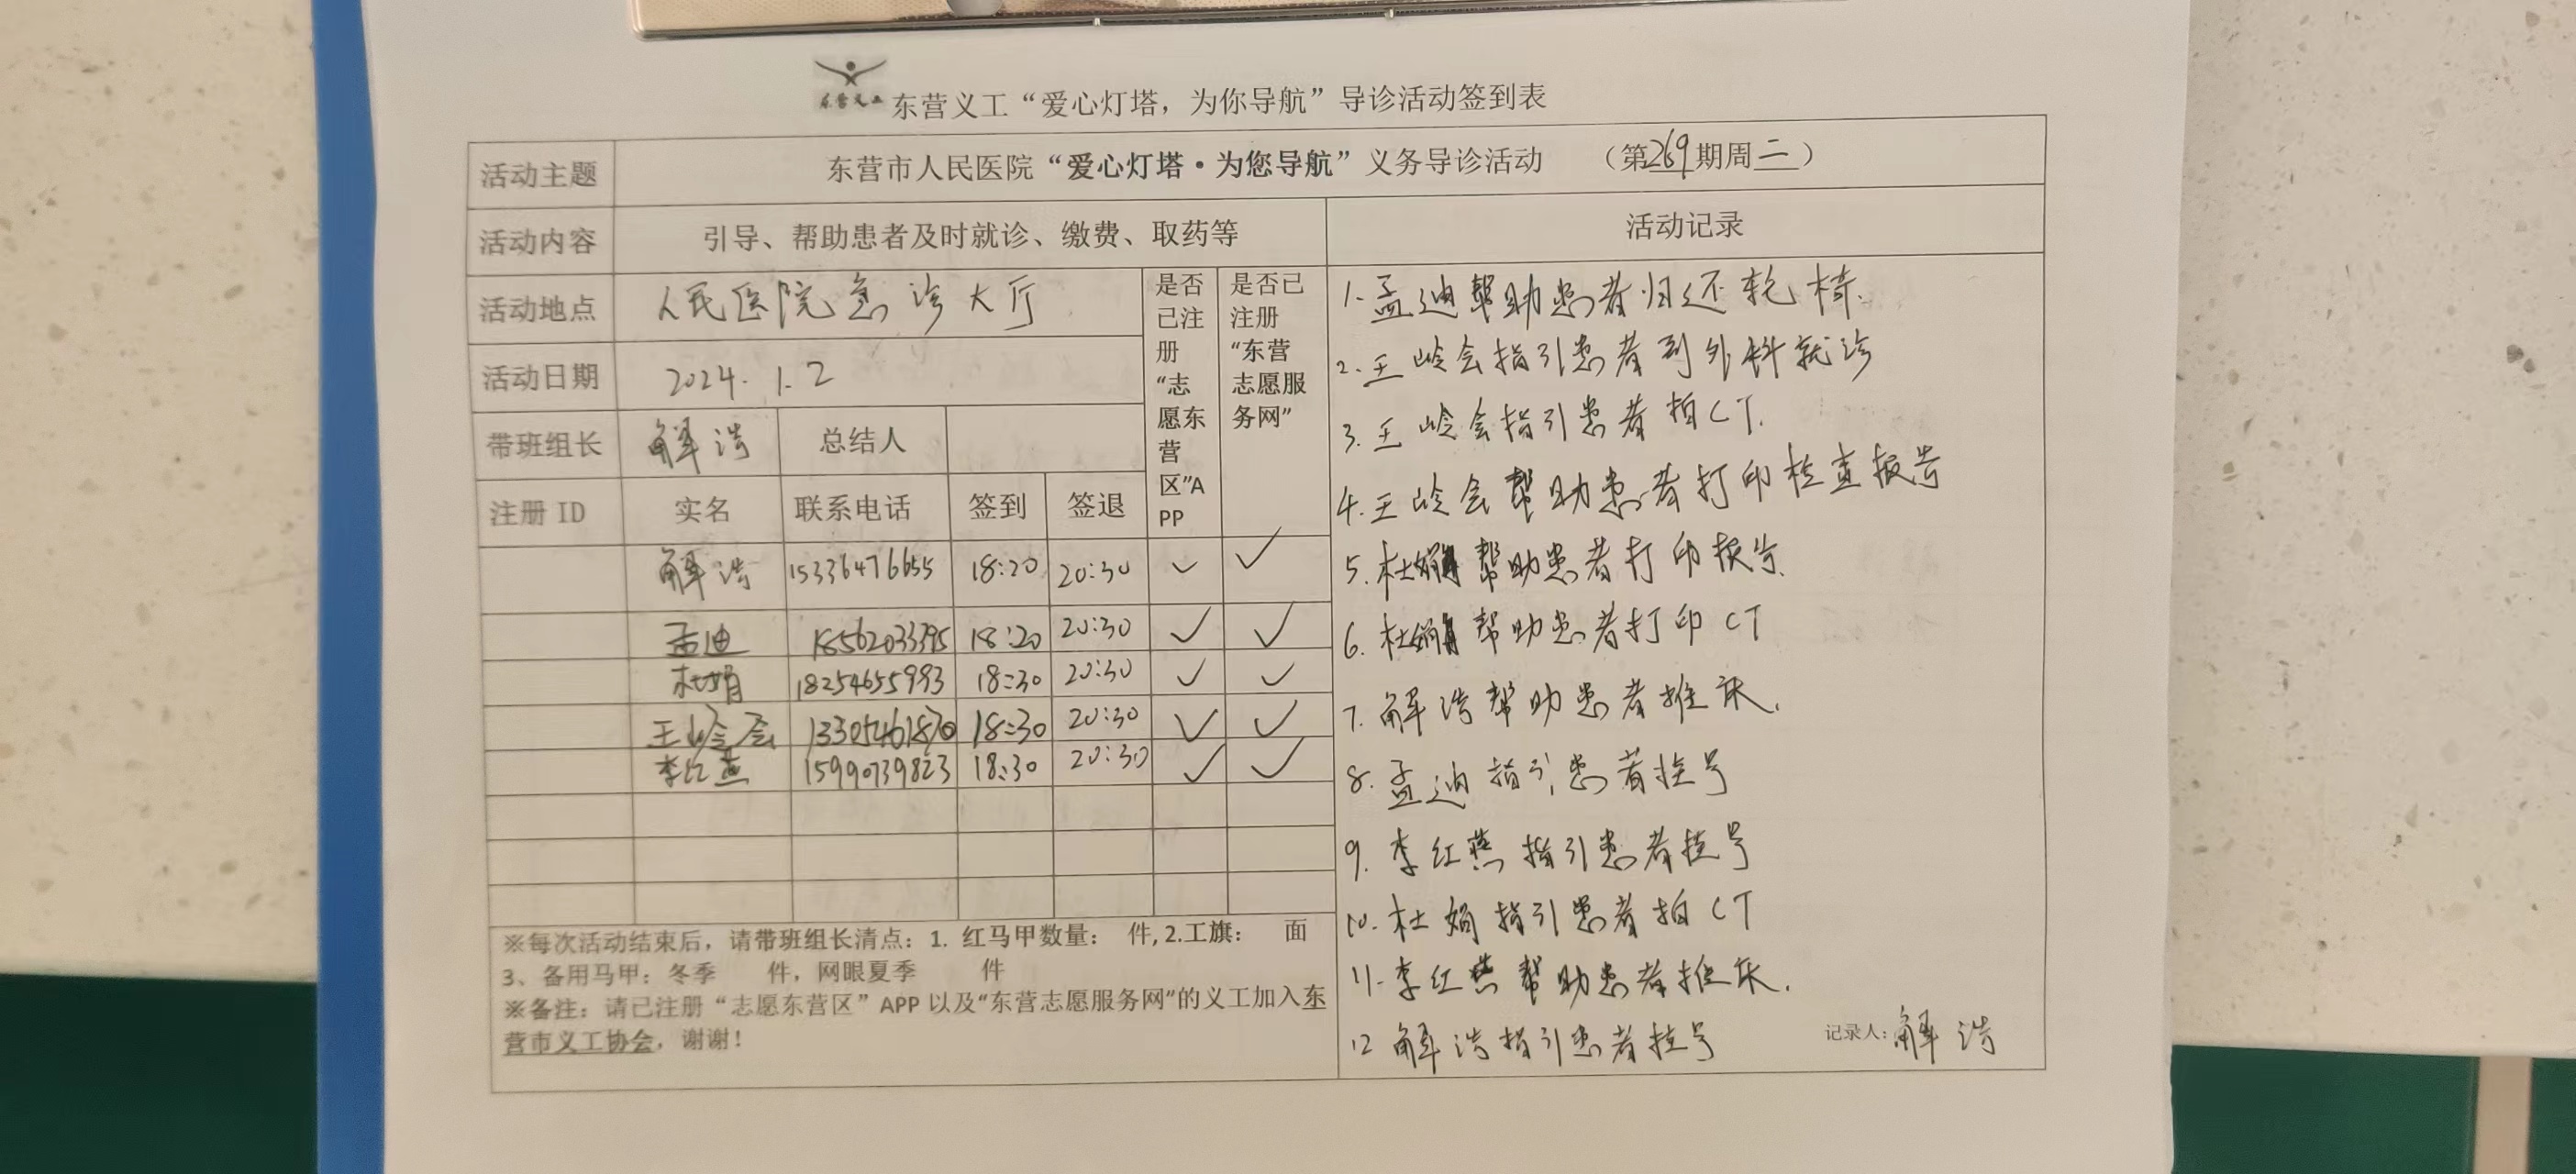 东营义工
东营义工“爱心灯塔，为你导航”导诊活动签到表
活动主题 东营市人民医院“爱心灯塔·为您导航”义务导诊活动 （第269期周二）
活动内容 引导、帮助患者及时就诊、缴费、取药等 活动记录
活动地点 人民医院急诊大厅
活动日期 2024.1.2
带班组长 解浩 总结人
是否
已注
册
“志
愿东
营
区”A
PP
是否已
注册
“东营
志愿服
务网”
注册 ID 实名 联系电话 签到 签退
解浩 15336476655 18:20 20:30 ✓ ✓
孟迪 18562033795 18:20 20:30 ✓ ✓
杜娟 18254655993 18:30 20:30 ✓ ✓
王岭会 13305461870 18:30 20:30 ✓ ✓
李红燕 15990739823 18:30 20:30 ✓ ✓
※每次活动结束后，请带班组长清点：1. 红马甲数量： 件, 2.工旗： 面
3、备用马甲：冬季 件，网眼夏季 件
※备注：请已注册“志愿东营区”APP 以及“东营志愿服务网”的义工加入东
营市义工协会，谢谢！
1.孟迪帮助患者归还轮椅.
2.王岭会指引患者到外科就诊
3.王岭会指引患者拍CT.
4.王岭会帮助患者打印检查报告
5.杜娟帮助患者打印报告.
6.杜娟帮助患者打印CT
7.解浩帮助患者推床.
8.孟迪指引患者挂号
9.李红燕指引患者挂号
10.杜娟指引患者拍CT
11.李红燕帮助患者推床.
12 解浩指引患者挂号
记录人：解浩